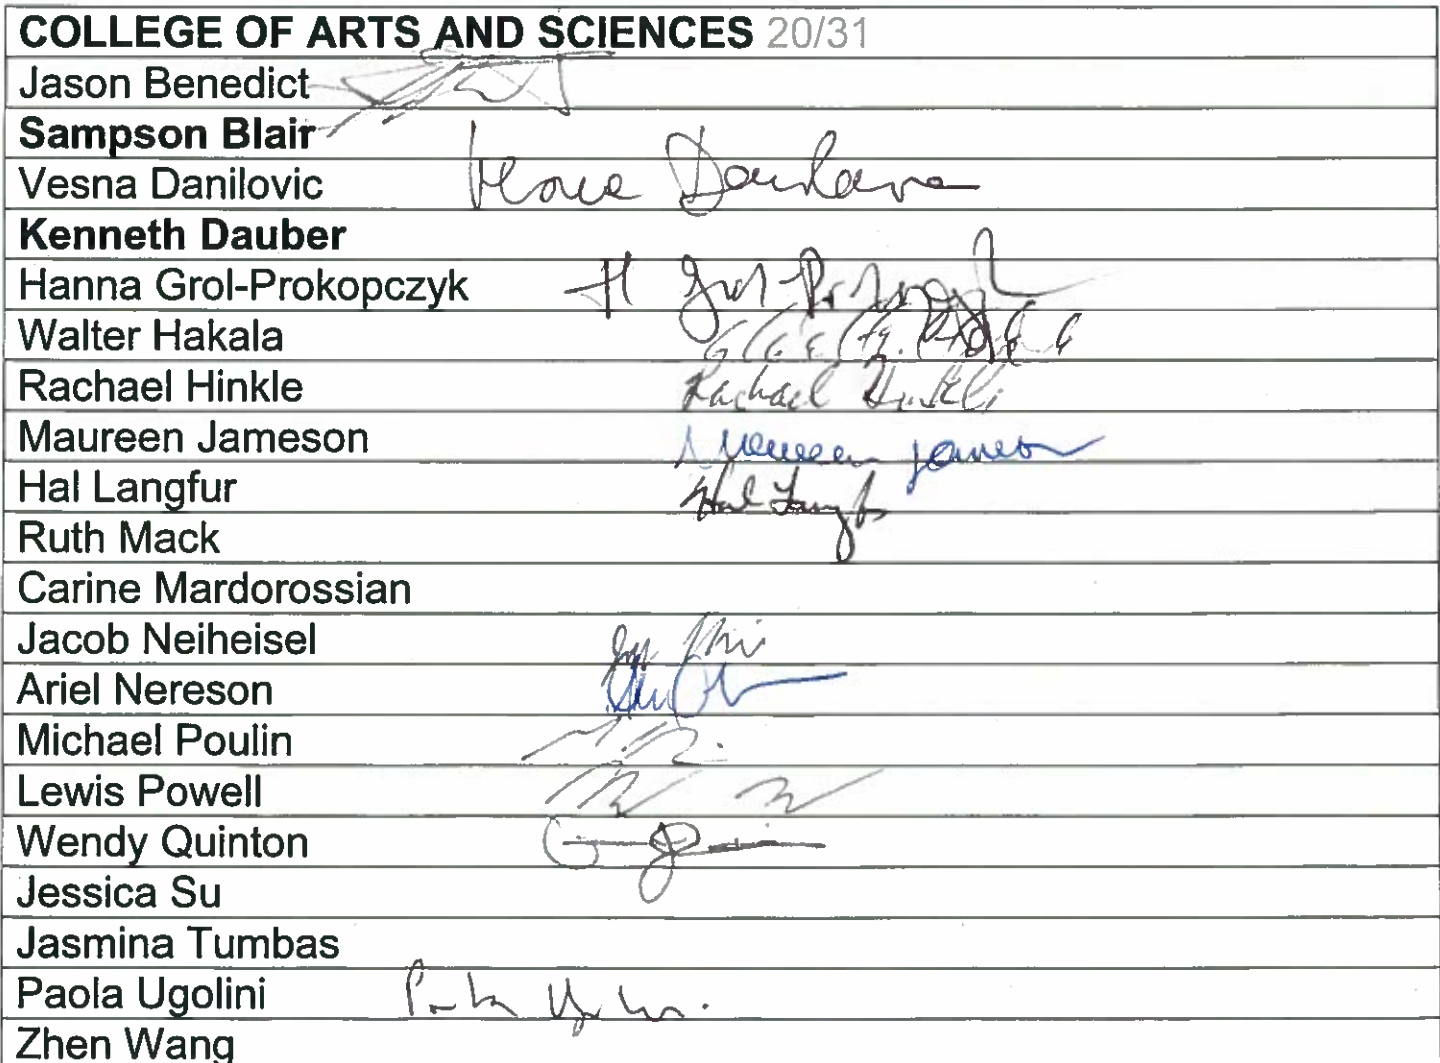 COLLEGE OF ARTS AND SCIENCES 20/31
Jason Benedict
Sampson Blair
Vesna Danilovic
Kenneth Dauber
Hanna Grol-Prokopczyk H Grol-Prokopczyk
Walter Hakala
Rachael Hinkle Rachael Hinkle
Maureen Jameson Maureen Jameson
Hal Langfur Hal Langfur
Ruth Mack
Carine Mardorossian
Jacob Neiheisel
Ariel Nereson
Michael Poulin
Lewis Powell
Wendy Quinton
Jessica Su
Jasmina Tumbas
Paola Ugolini
Zhen Wang